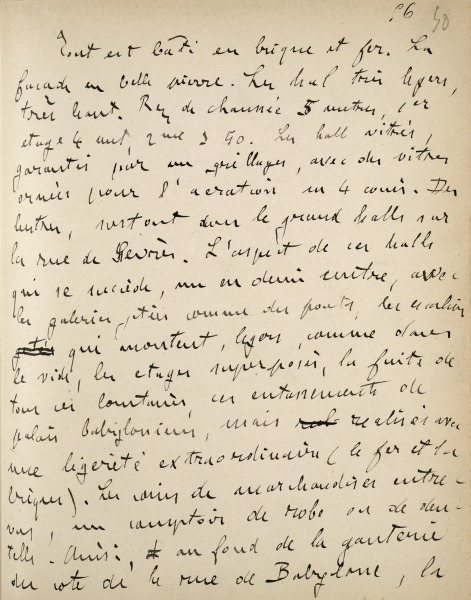 56 50
Tout est bâti en brique et fer. La
façade en belle pierre. Les hal très légers,
très haut. Rez de chaussée 5 mètres, 1er
étage 4 and, 2me 3 50. Les hall vitrés,
garantis par un grillages, avec des vitres
ornées pour l'aeration en 4 coins. Des
lustres, surtout dans le grand halls sur
la rue de Sèvres. L'aspect de ces halls
qui se succède, un en demi centre, avec
les galeries jetées comme des ponts, les escaliers
qui montent, légers, comme dans
le vide, les etages superposés, la fuite de
tous ces lointains, ces entassements de
palais babyloniens, mais realisés avec
une légereté extraordinaire (le fer et la
brique). Les coins de marchandises entre-
vus, un comptoir de robe ou de den-
telle. Ainsi, au fond de la ganterie
du coté de la rue de Babylone, la